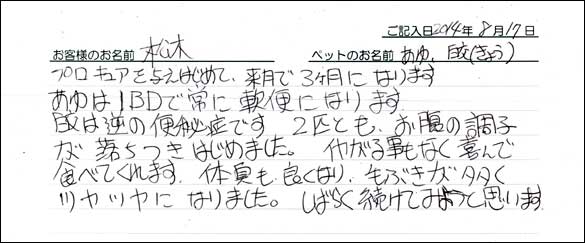 ご記入日2014年8月17日
お客様のお名前 松木 ペットのお名前 あゆ、(きょう)
プロキュアを与えはじめて、来月で3ヶ月になります
あゆはIBDで常に軟便になります
は逆の便秘症です 2匹とも、お腹の調子
が落ちつきはじめました。イヤがる事もなく喜んで
食べてくれます。体臭も良くなり、毛ぶきが多く
ツヤツヤになりました。しばらく続けてみようと思います